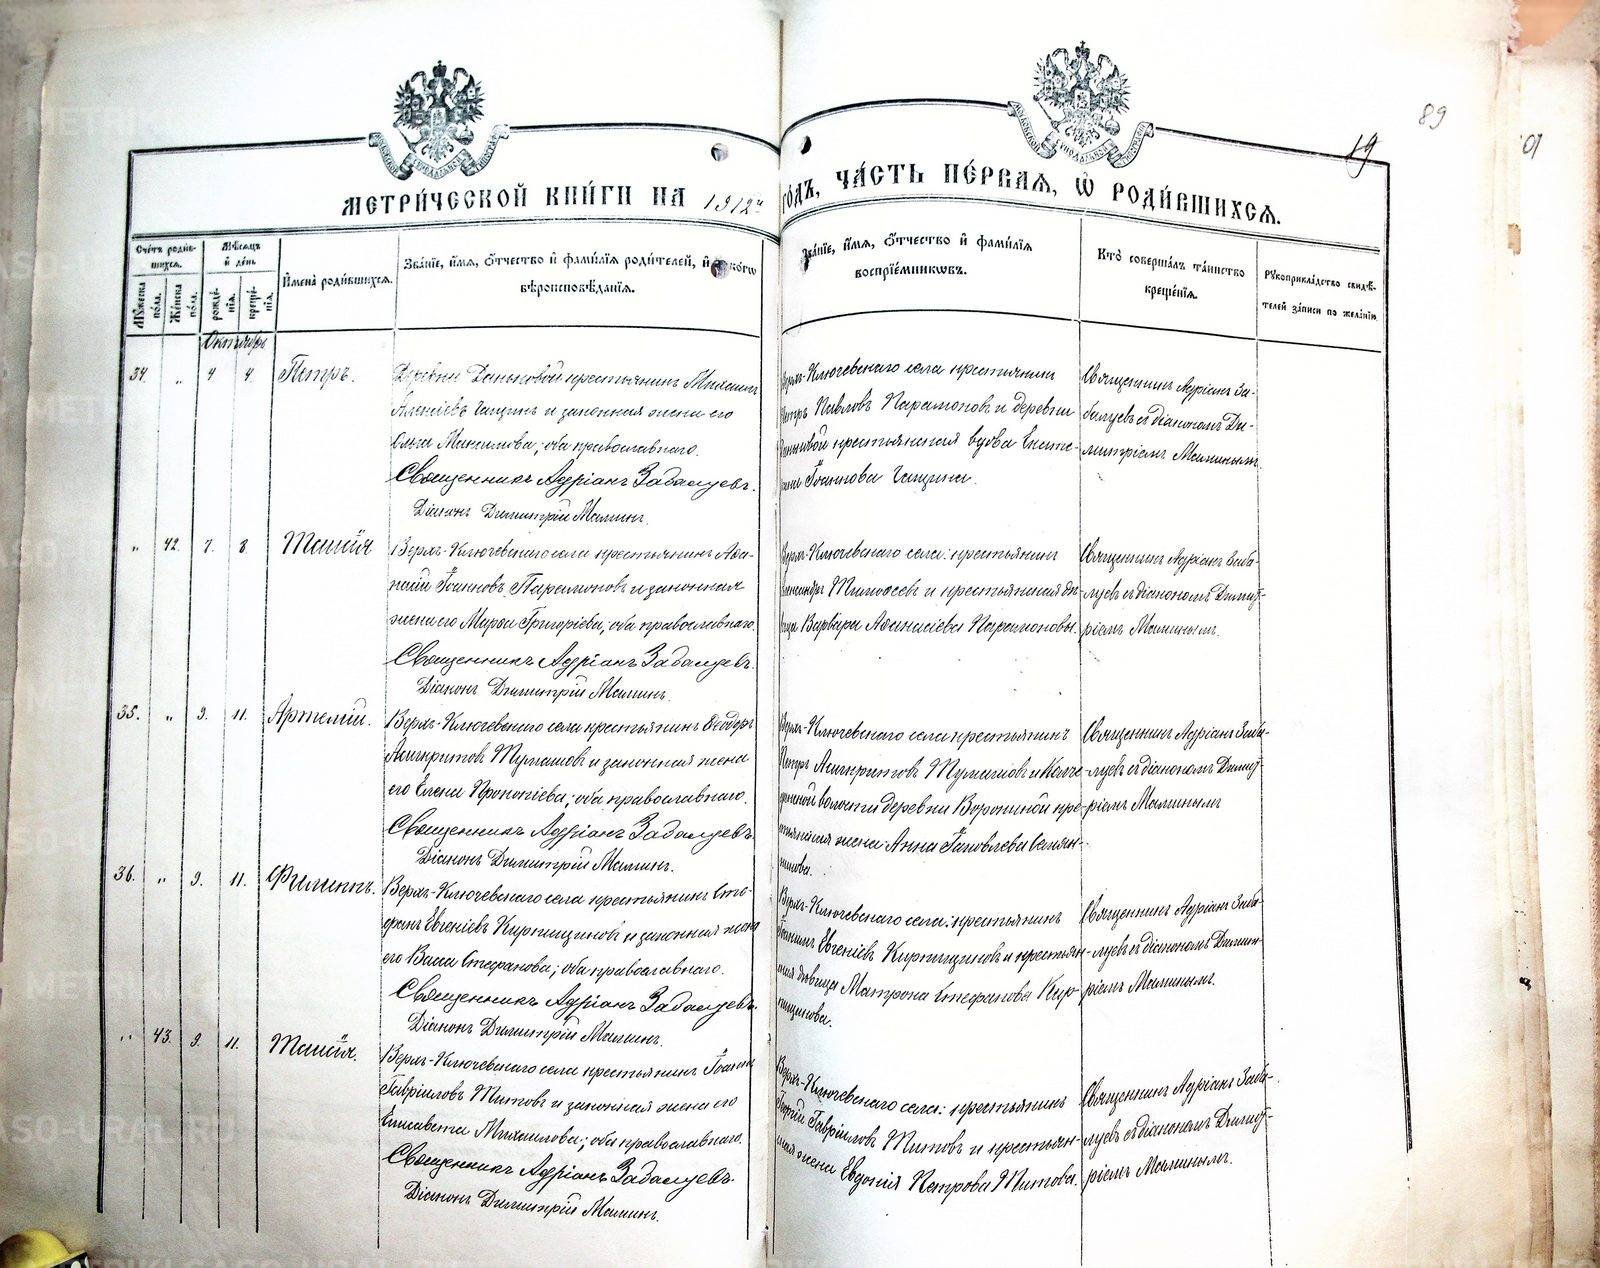 89
19
МЕТРИ́ЧЕСКОЙ КНИ́ГИ НА 1912й
ГО́ДЪ, ЧА́СТЬ ПЕ́РВАЯ, Ѡ РОДИ́ВШИХСЯ.
Сче́тъ роди́в-
шихся.
Му́жеска по́ла.
Же́нска по́ла.
Мѣ́сяцъ и де́нь
рожде́нія.
креще́нія.
Имена̀ роди́вшихся.
Зва́нїе, и́мя, ѻ́тчество и҆ фами́лїя роди́телей, и҆ како́гѡ
вѣроисповѣ́данїя.
Зва́нїе, и́мя, ѻ́тчество и҆ фами́лїя
воспрїе́мникѡвъ.
Кто̀ соверша́лъ та́инство
креще́нїя.
Рукоприкла́дство свидѣ́-
телей за́писи по жела́нїю.
Октябрь
34. „ 4 4. Петръ.
Деревни Даньковой крестьянинъ Михаилъ
Алексіевъ Гащинъ и законная жена его
Ольга Максимова; оба православнаго.
Священникъ Адріанъ Забалуевъ.
Діаконъ Димитрій Маминъ.
Верхъ-Ключевскаго села крестьянинъ
Петръ Павловъ Парамоновъ и деревни
Даньковой крестьянская вдова Екате-
рина Іоаннова Гащина.
Священникъ Адріанъ За-
балуевъ съ діакономъ Ди-
митріемъ Маминымъ.
„ 42. 7. 8 Таисія
Верхъ-Ключевскаго села крестьянинъ Аѳа-
насій Іоанновъ Парамоновъ и законная
жена его Марѳа Григоріева, оба православнаго.
Священникъ Адріанъ Забалуевъ.
Діаконъ Димитрій Маминъ.
Верхъ-Ключевскаго села: крестьянинъ
Александръ Тимоѳеевъ и крестьянская дѣ-
вица Варвара Аѳанасіева Парамоновы.
Священникъ Адріанъ Заба-
луевъ съ діакономъ Димит-
ріемъ Маминымъ.
35. „ 9. 11. Артемій.
Верхъ-Ключевскаго села крестьянинъ Ѳеодоръ
Асигкритовъ Тумашовъ и законная жена
его Елена Прокопіева; оба православнаго.
Священникъ Адріанъ Забалуевъ.
Діаконъ Димитрій Маминъ.
Верхъ-Ключевскаго села крестьянинъ
Петръ Асигкритовъ Тумашовъ и
волости деревни Ворониной кре-
стьянская жена Анна Іаковлева
Священникъ Адріанъ Заба-
луевъ съ діакономъ Димит-
ріемъ Маминымъ
36. „ 9. 11. Филиппъ.
Верхъ-Ключевскаго села крестьянинъ Сте-
фанъ Евгеніевъ Кирпищиковъ и законная жена
его Васса Стефанова; оба православнаго.
Священникъ Адріанъ Забалуевъ.
Діаконъ Димитрій Маминъ.
Верхъ-Ключевскаго села: крестьянинъ
Евгеніевъ Кирпищиковъ и крестьян-
ская дѣвица Матрона Стефанова Кир-
пищикова.
Священникъ Адріанъ Заба-
луевъ съ діакономъ Димит-
ріемъ Маминымъ.
„ 43. 9. 11. Таисія.
Верхъ-Ключевскаго села крестьянинъ Іоаннъ
Гавріиловъ Титовъ и законная жена его
Елисавета Михаилова; оба православнаго.
Священникъ Адріанъ Забалуевъ.
Діаконъ Димитрій Маминъ.
Верхъ-Ключевскаго села: крестьянинъ
Георгій Гавріиловъ Титовъ и крестьян-
ская жена Евдокія Петрова Титова.
Священникъ Адріанъ Заба-
луевъ съ діакономъ Димит-
ріемъ Маминымъ.